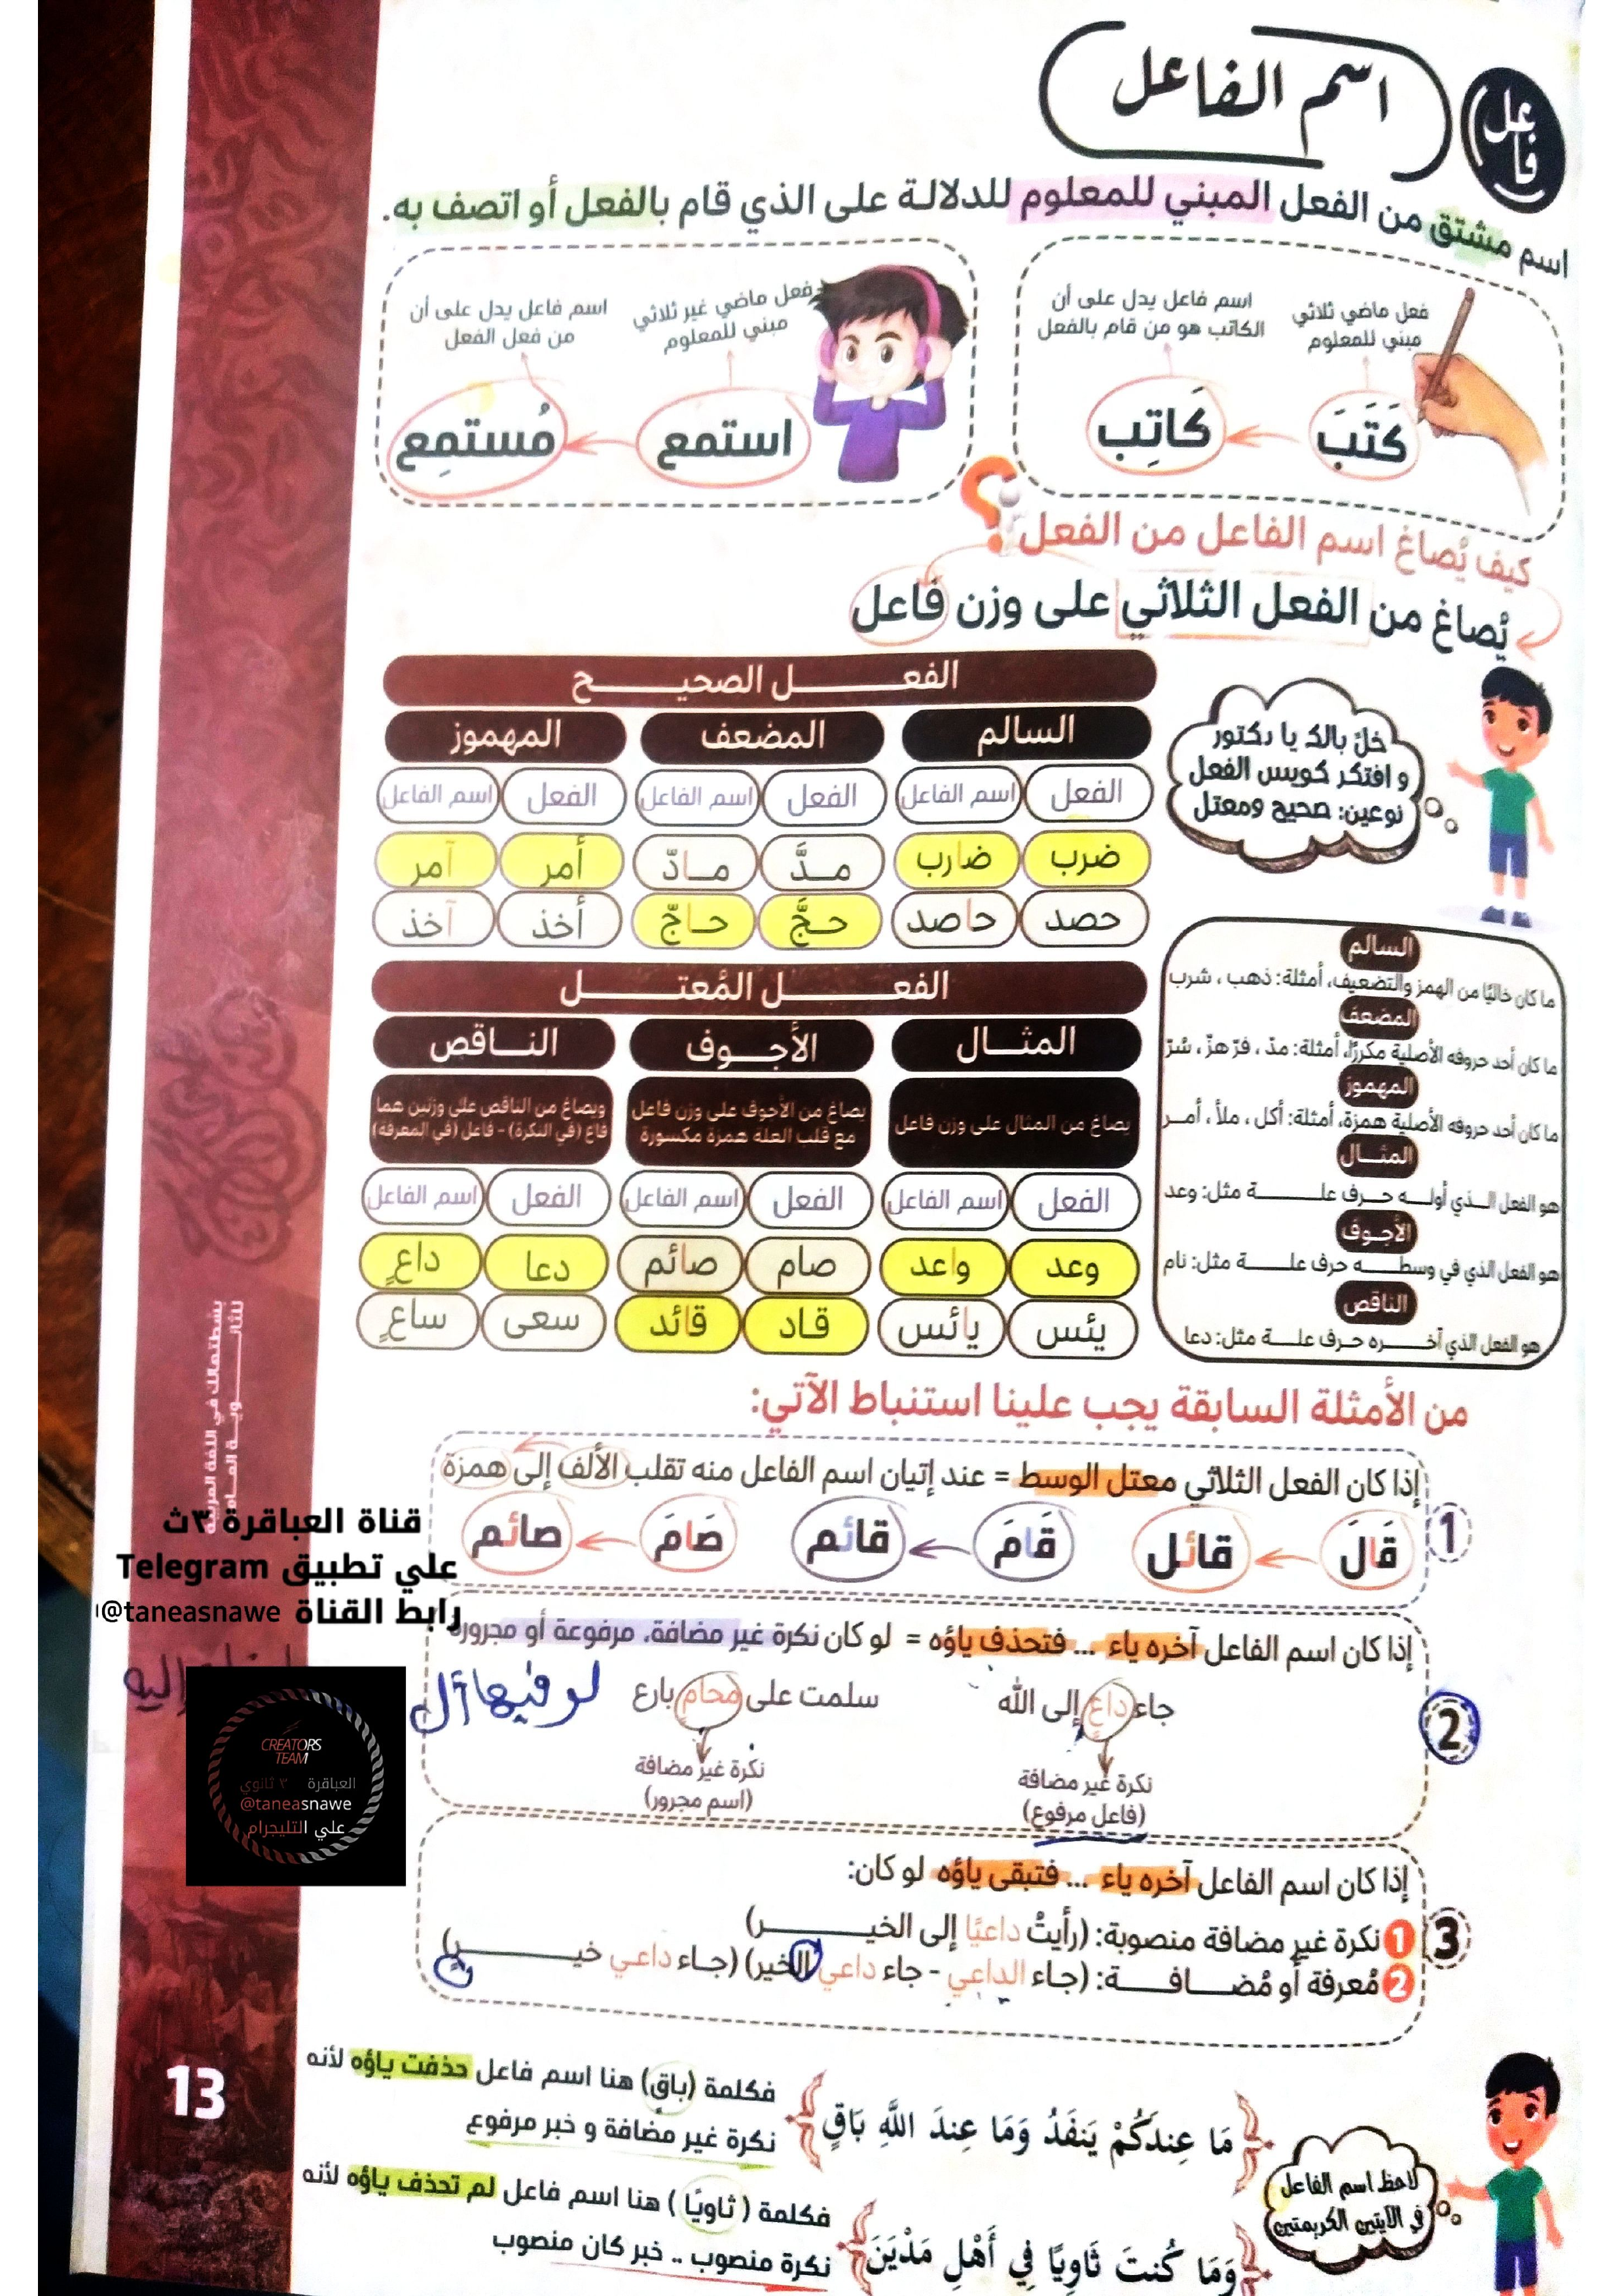 اسم الفاعل
فاعل
اسم مشتق من الفعل المبني للمعلوم للدلالة على الذي قام بالفعل أو اتصف به.
فعل ماضي ثلاثي
مبني للمعلوم
اسم فاعل يدل على أن
الكاتب هو من قام بالفعل
كَتَبَ
كَاتِب
فعل ماضي غير ثلاثي
مبني للمعلوم
اسم فاعل يدل على أن
من فعل الفعل
استمع
مُستمِع
كيف يُصاغ اسم الفاعل من الفعل؟
يُصاغ من الفعل الثلاثي على وزن فاعل
خلّ بالك يا دكتور
و افتكر كويس الفعل
نوعين: صحيح ومعتل
الفعـــــــل الصحيـــــــح
السالم المضعف المهموز
الفعل اسم الفاعل الفعل اسم الفاعل الفعل اسم الفاعل
ضرب ضارب مـدَّ مـادّ أمر آمر
حصد حاصد حـجَّ حـاجّ أخذ آخذ
الفعـــــــل المُعتـــــــل
المثـــال الأجـــوف الناقص
يصاغ من المثال على وزن فاعل
يصاغ من الأجوف على وزن فاعل
مع قلب العلة همزة مكسورة
ويصاغ من الناقص على وزنين هما
فاع (في النكرة) - فاعل (في المعرفة)
الفعل اسم الفاعل الفعل اسم الفاعل الفعل اسم الفاعل
وعد واعد صام صائم دعا داعٍ
يئس يائس قـاد قائد سعى ساعٍ
السالم
ما كان خاليًا من الهمز والتضعيف، أمثلة: ذهب ، شرب
المضعف
ما كان أحد حروفه الأصلية مكررًا، أمثلة: مدّ ، فرّ هزّ ، شرّ
المهموز
ما كان أحد حروفه الأصلية همزة، أمثلة: أكل ، ملأ ، أمـر
المثــال
هو الفعل الـذي أولـه حـرف علـــة مثل: وعد
الأجـوف
هو الفعل الذي في وسطـــه حرف علـــة مثل: نام
الناقص
هو الفعل الذي آخـــره حرف علـــة مثل: دعا
من الأمثلة السابقة يجب علينا استنباط الآتي:
1
إذا كان الفعل الثلاثي معتل الوسط = عند إتيان اسم الفاعل منه تقلب الألف إلى همزة
قَالَ قائل قَامَ قائم صَامَ صائم
2
إذا كان اسم الفاعل آخره ياء ... فتحذف ياؤه = لو كان نكرة غير مضافة، مرفوعة أو مجرورة
جاء داعٍ إلى الله
سلمت على محامٍ بارع
لو فيها ال
إليه
نكرة غير مضافة
(فاعل مرفوع)
نكرة غير مضافة
(اسم مجرور)
3
إذا كان اسم الفاعل آخره ياء ... فتبقى ياؤه لو كان:
1 نكرة غير مضافة منصوبة: (رأيتُ داعيًا إلى الخيـــــر)
2 مُعرفة أو مُضـــافـــة: (جـاء الداعي - جاء داعي الخير) (جـاء داعـي خيـــــرٍ)
لاحظ اسم الفاعل
في الآيتين الكريمتين
مَا عِندَكُمْ يَنفَدُ وَمَا عِندَ اللَّهِ بَاقٍ
فكلمة (باقٍ) هنا اسم فاعل حذفت ياؤه لأنه
نكرة غير مضافة و خبر مرفوع
وَمَا كُنتَ ثَاوِيًا فِي أَهْلِ مَدْيَنَ
فكلمة ( ثاويًا ) هنا اسم فاعل لم تحذف ياؤه لأنه
نكرة منصوب .. خبر كان منصوب
13
قناة العباقرة ٣ث
علي تطبيق Telegram
رابط القناة @taneasnawe
CREATORS
TEAM
العباقرة ٣ ثانوي
@taneasnawe
علي التليجرام